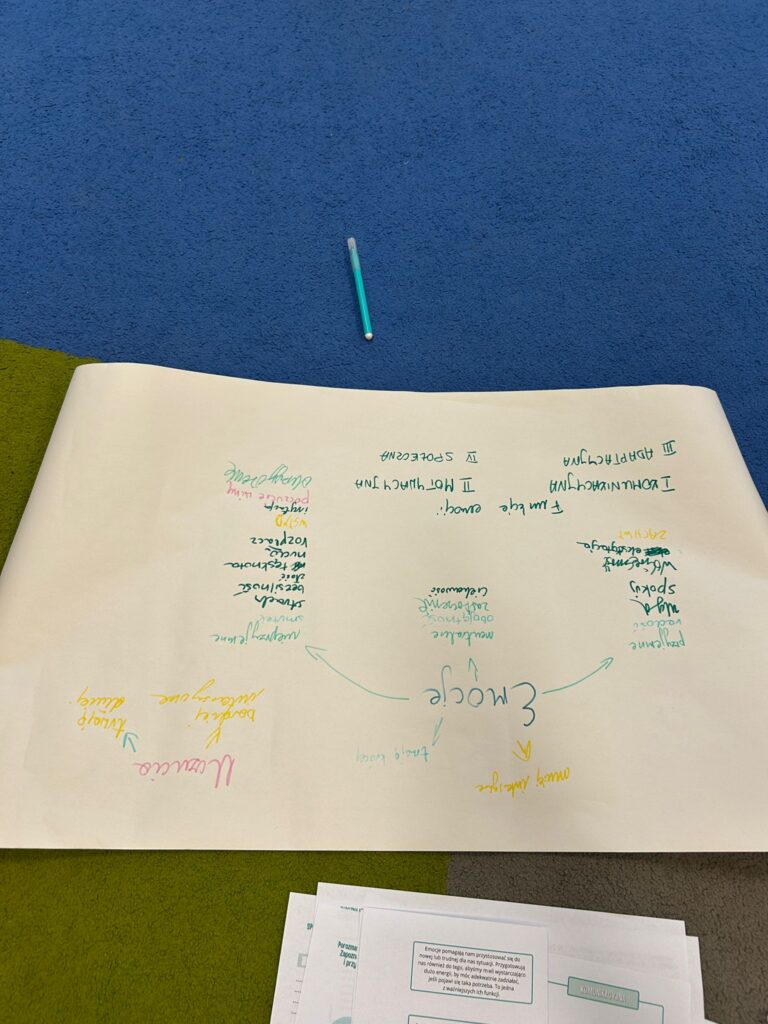 mniej intensywne
trwają krócej
Emocje
przyjemne
radość
ulga
spokój
ekscytacja
ZACHWYT
neutralne
obojętność
zaskoczenie
ciekawość
nieprzyjemne
smutek
strach
bezsilność
złość
tęsknota
nuda
rozpacz
WSTYD
irytacja
poczucie winy
obrzydzenie
Uczucia
bardziej
intensywne
trwają
dłużej
Funkcje emocji
I KOMUNIKACYJNA
II MOTYWACYJNA
III ADAPTACYJNA
IV SPOŁECZNA
Emocje pomagają nam przystosować się do
nowej lub trudnej dla nas sytuacji. Przygotowują
nas również do tego, abyśmy mieli wystarczająco
dużo energii, by móc adekwatnie zadziałać,
jeśli pojawi się taka potrzeba. To jedna
z ważniejszych ich funkcji.
KOMUNIKACYJNA